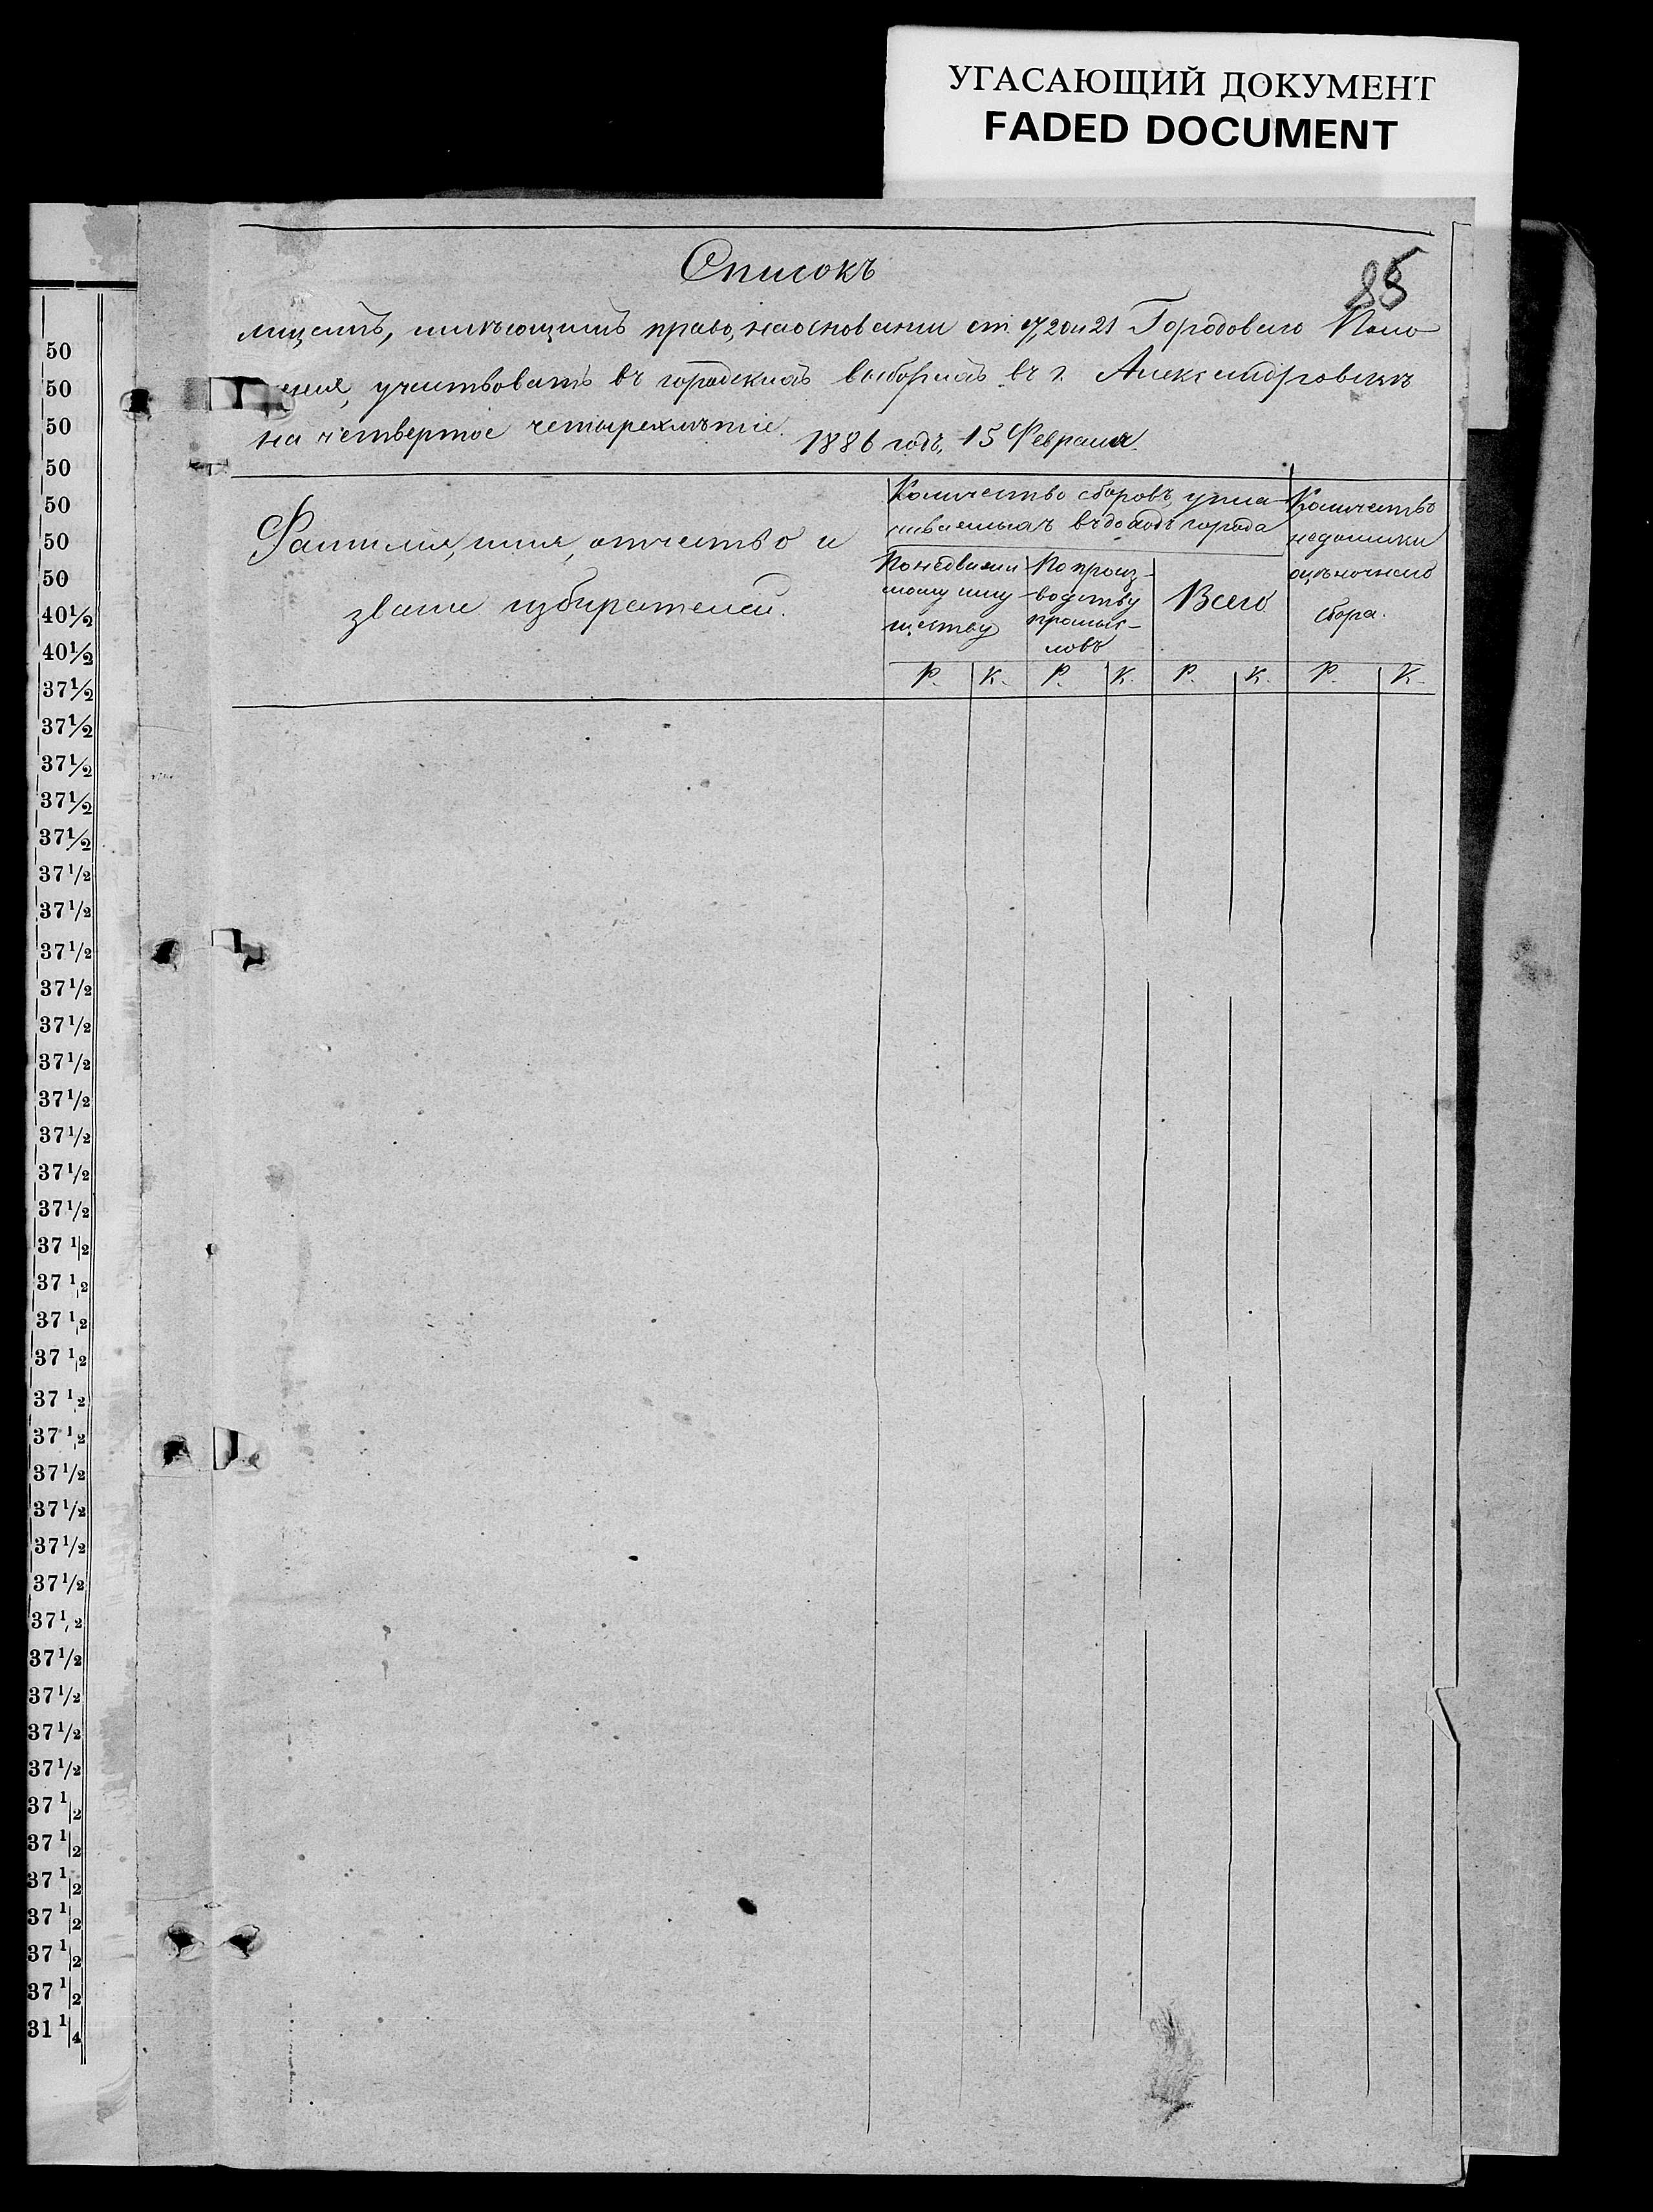 УГАСАЮЩИЙ ДОКУМЕНТ
FADED DOCUMENT
Списокъ
85
лицамъ, имѣющимъ право, на основании ст. 17, 20 и 21 Городоваго Поло-
жения, участвовать въ городскихъ выборахъ въ г. Александровскѣ
на четвертое четырехлѣтіе.
1886 годъ, 15 Февраля.
Фамилия, имя, отчество и
звание избирателей.
Количество сборовъ, упла-
чиваемыхъ въ доходъ города
По недвижи
мому иму
ществу
По произ-
водству
промыс-
ловъ
Всего
Количество
недоимки
оцѣночнаго
сбора.
Р. К. Р. К. Р. К. Р. К.
50
50
50
50
50
50
50
40 1/2
40 1/2
37 1/2
37 1/2
37 1/2
37 1/2
37 1/2
37 1/2
37 1/2
37 1/2
37 1/2
37 1/2
37 1/2
37 1/2
37 1/2
37 1/2
37 1/2
37 1/2
37 1/2
37 1/2
37 1/2
37 1/2
37 1/2
37 1/2
37 1/2
37 1/2
37 1/2
37 1/2
37 1/2
37 1/2
37 1/2
37 1/2
37 1/2
37 1/2
37 1/2
37 1/2
37 1/2
37 1/2
31 1/4